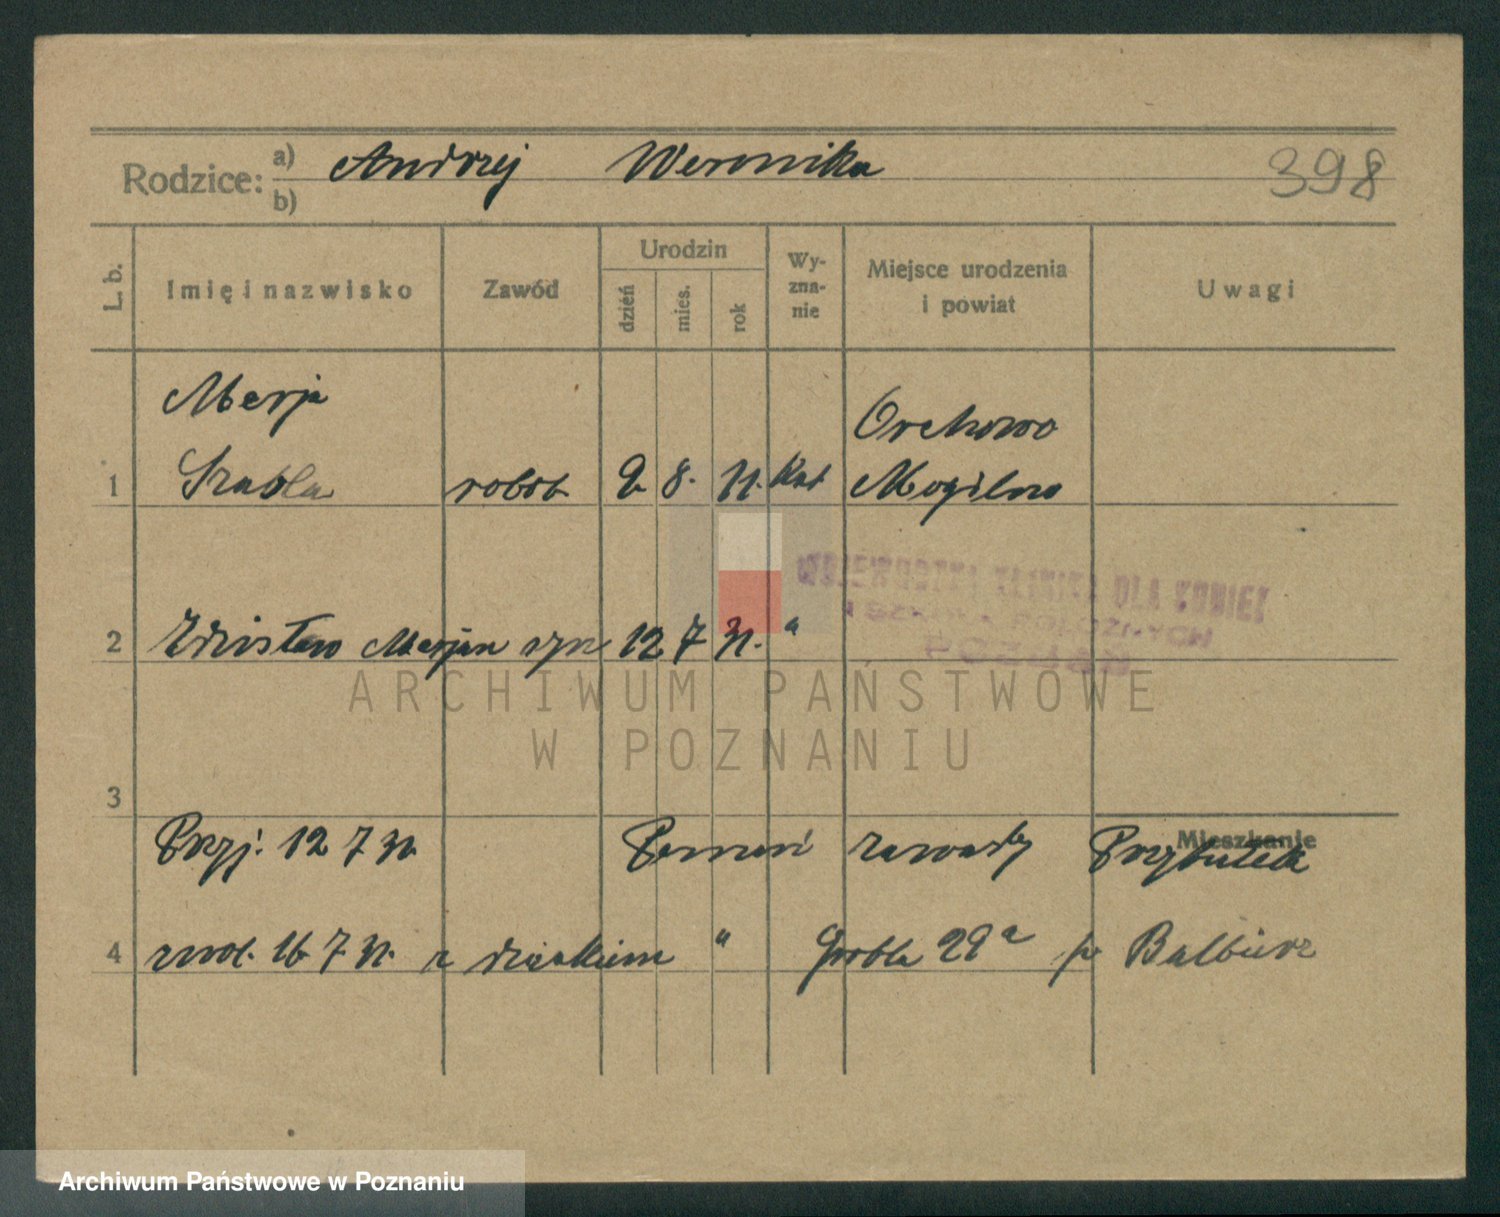 Rodzice: a) Andrzej Weronika 398
b)
L. b. Imię i nazwisko Zawód Urodzin dzień mies. rok Wy-zna-nie Miejsce urodzenia i powiat Uwagi
Marja
Orchowo
1 Szabla robot. 2 8. 11. Kat Mogilno
WOJEWÓDZKA KLINIKA DLA KOBIET
I SZKOŁA POŁOŻNYCH
POZNAŃ
2 Zdzisław Marjan syn 12 7 31. "
ARCHIWUM PAŃSTWOWE
W POZNANIU
3
Mieszkanie
Przyj. 12 7 31. Poznań zawady Przytułek
4 zwol. 16 7 31. z dzieckiem " Grobla 29a p.
Archiwum Państwowe w Poznaniu